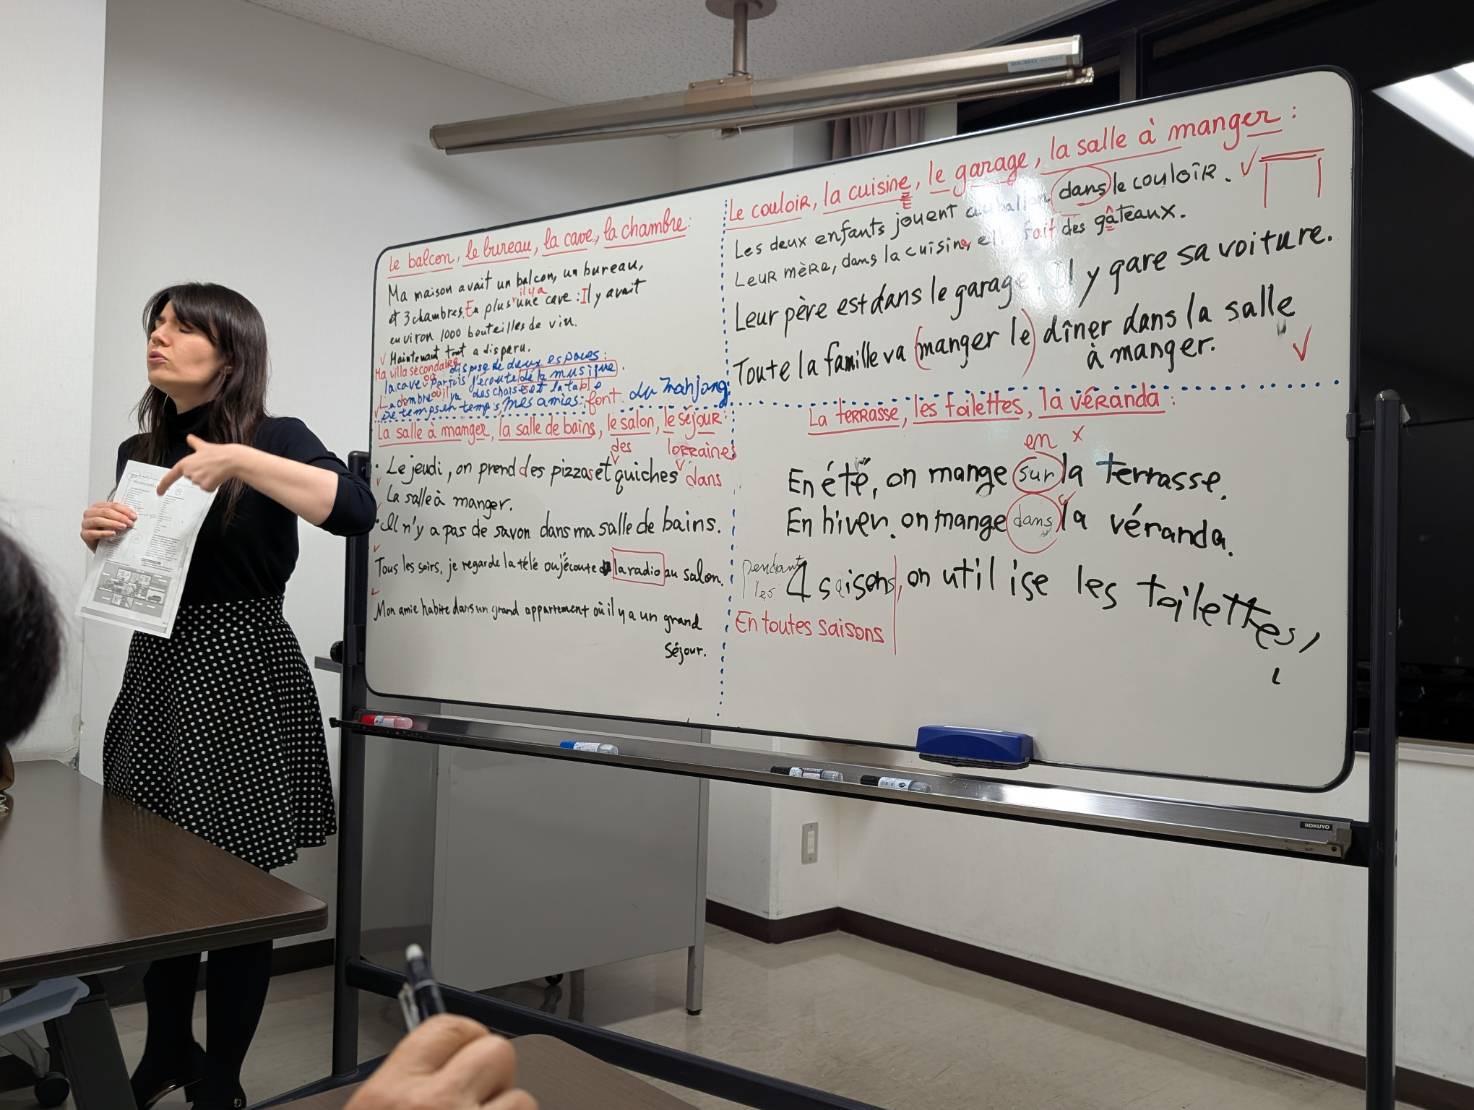 le balcon, le bureau, la cave, la chambre:
Ma maison avait un balcon, un bureau,
et 3 chambres. En plus une cave : Il y avait
il y a
environ 1000 bouteilles de vin.
Maintenant tout a disparu.
Ma villa secondaire dispose de deux espaces:
la cave où parfois j'écoute de la musique.
La chambre où il ya des chaises et la table
De temps en temps mes amies font du mahjong
La salle à manger, la salle de bains, le salon, le séjour:
des lorraines
Le jeudi, on prend des pizzas et quiches dans
la salle à manger.
Il n'y a pas de savon dans ma salle de bains.
Tous les soirs, je regarde la télé ou j'écoute la radio au salon.
Mon amie habite dans un grand appartement où il y a un grand
séjour.
Le couloir, la cuisine, le garage, la salle à manger:
Les deux enfants jouent au ballon dans le couloir.
Leur mère, dans la cuisine, fait des gâteaux.
Leur père est dans le garage. Il y gare sa voiture.
Toute la famille va (manger le) dîner dans la salle
à manger.
La terrasse, les toilettes, la véranda:
en x
En été, on mange sur la terrasse.
En hiver. on mange dans la véranda.
pendant
les 4 saisons, on utilise les toilettes,
En toutes saisons
KOKUYO